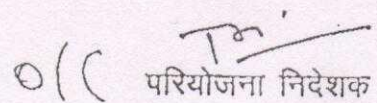 परियोजना निदेशक